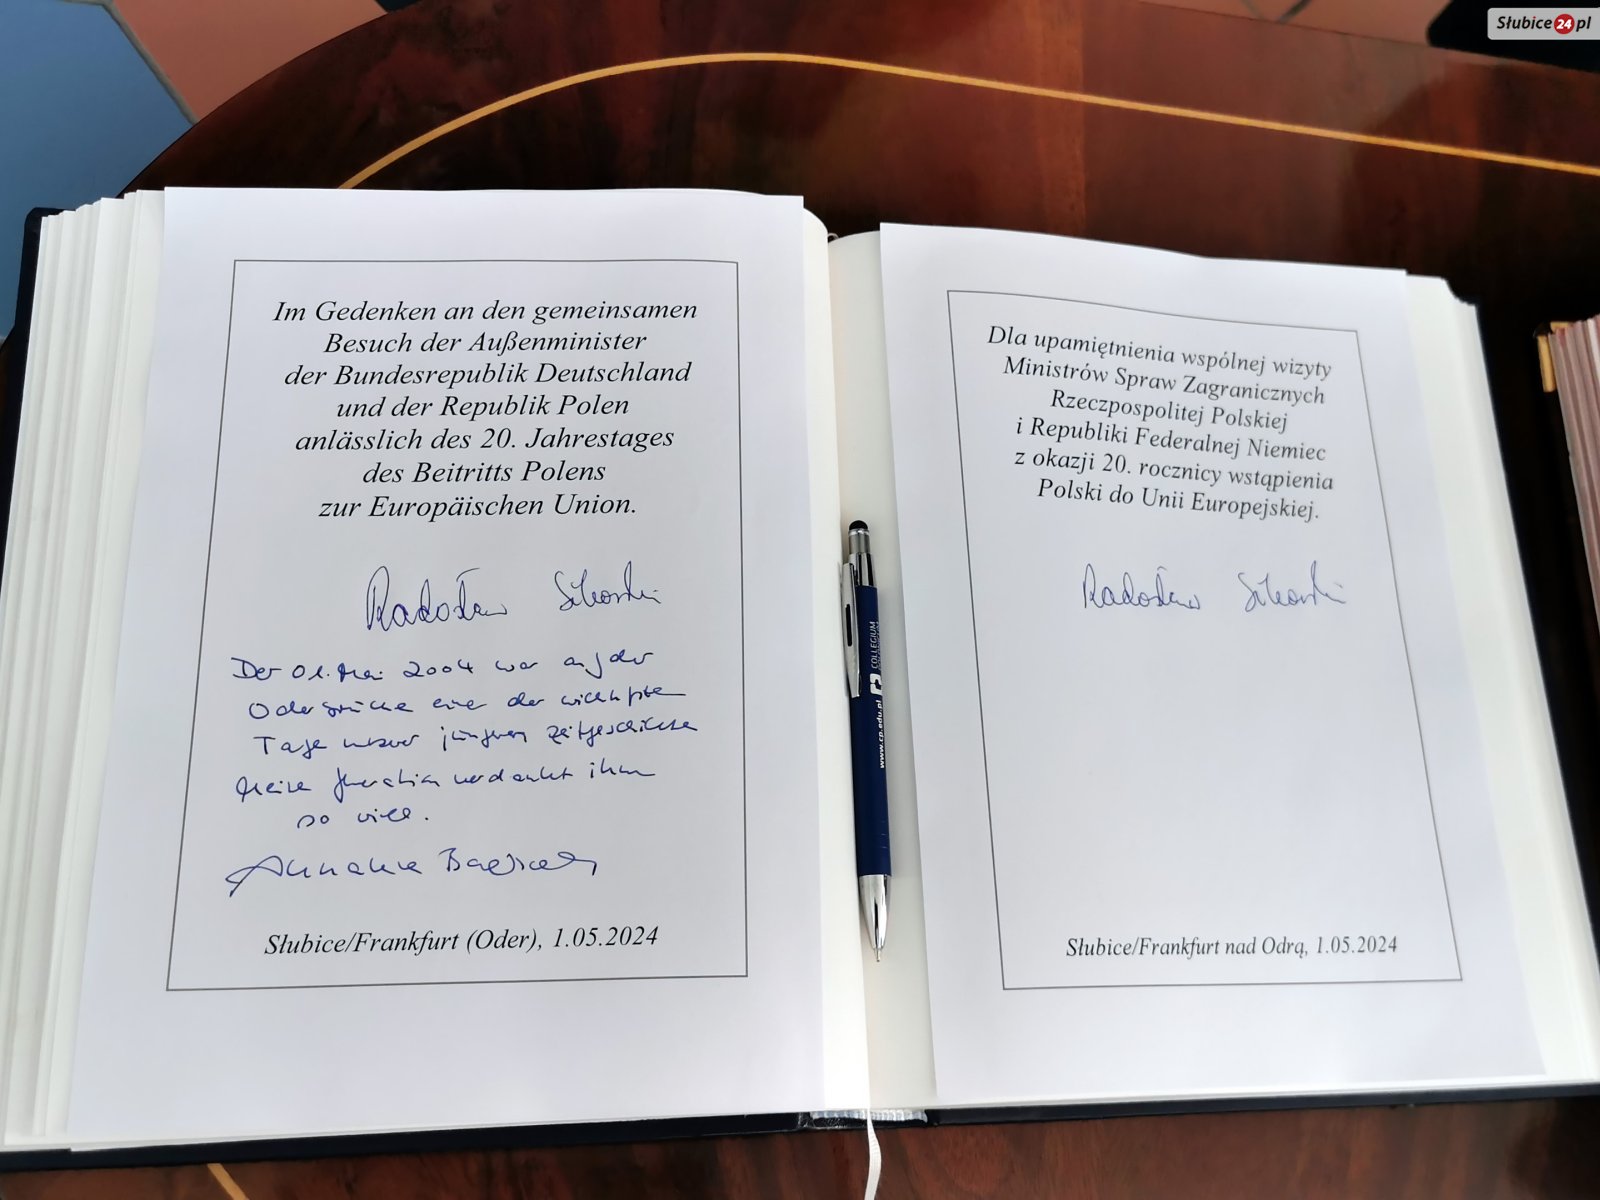 Słubice24.pl
Im Gedenken an den gemeinsamen
Besuch der Außenminister
der Bundesrepublik Deutschland
und der Republik Polen
anlässlich des 20. Jahrestages
des Beitritts Polens
zur Europäischen Union.
Radosław Sikorski
Der 01. Mai 2004 war auf der
Oderbrücke einer der wichtigsten
Tage unserer jüngeren Zeitgeschichte
Meine Generation verdankt ihm
so viel.
Annalena Baerbock
Słubice/Frankfurt (Oder), 1.05.2024
COLLEGIUM
www.cp.edu.pl
Dla upamiętnienia wspólnej wizyty
Ministrów Spraw Zagranicznych
Rzeczpospolitej Polskiej
i Republiki Federalnej Niemiec
z okazji 20. rocznicy wstąpienia
Polski do Unii Europejskiej.
Radosław Sikorski
Słubice/Frankfurt nad Odrą, 1.05.2024